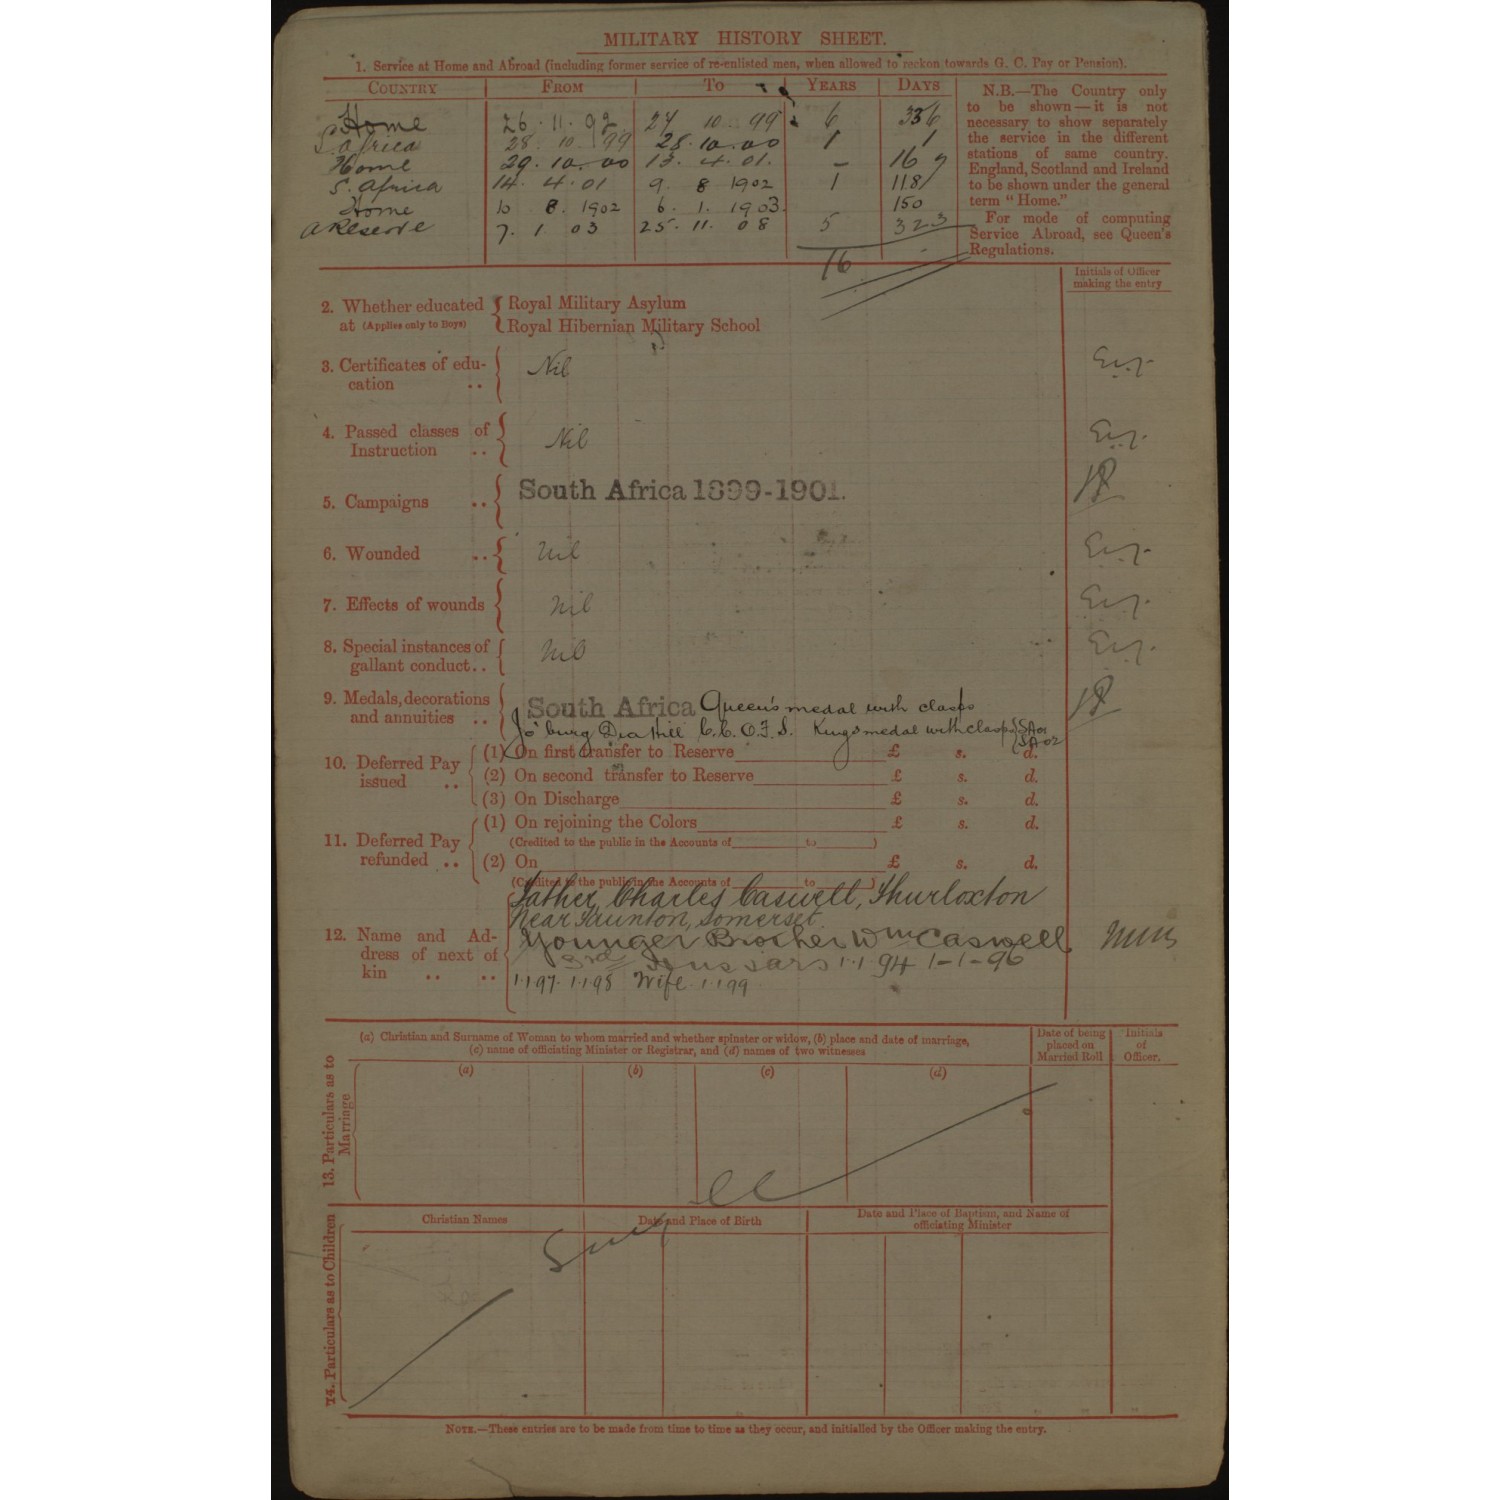 MILITARY HISTORY SHEET.
1. Service at Home and Abroad (including former service of re-enlisted men, when allowed to reckon towards G. C. Pay or Pension).
COUNTRY FROM TO YEARS DAYS
Home 26 . 11 . 92 27 10 99 6 336
S Africa 28 . 10 . 99 28 . 10 . 00 1 1
Home 29 . 10 . 00 13 . 4 . 01 . – 167
S. Africa 14 . 4 . 01 9 . 8 1902 1 118
Home 10 8 . 1902 6 . 1 . 1903 . 150
A Reserve 7 . 1 03 25 . 11 . 08 5 323
16
N.B.—The Country only
to be shown—it is not
necessary to show separately
the service in the different
stations of same country.
England, Scotland and Ireland
to be shown under the general
term "Home."
For mode of computing
Service Abroad, see Queen's
Regulations.
Initials of Officer
making the entry
2. Whether educated
at (Applies only to Boys)
Royal Military Asylum
Royal Hibernian Military School
3. Certificates of edu-
cation ..
Nil
4. Passed classes of
Instruction ..
Nil
5. Campaigns ..
South Africa 1899-1901.
6. Wounded ..
Nil
7. Effects of wounds
Nil
8. Special instances of
gallant conduct..
Nil
9. Medals, decorations
and annuities ..
South Africa Queen's medal with clasps
Jo'burg Dia Hill C.C. O.F.S. Kings medal with clasps SA 01
SA 02
10. Deferred Pay
issued ..
(1) On first transfer to Reserve £ s. d.
(2) On second transfer to Reserve £ s. d.
(3) On Discharge £ s. d.
11. Deferred Pay
refunded ..
(1) On rejoining the Colors £ s. d.
(Credited to the public in the Accounts of to )
(2) On £ s. d.
(Credited to the public in the Accounts of to )
12. Name and Ad-
dress of next of
kin .. ..
Father, Charles Caswell, Thurloxton
near Taunton, Somerset
Younger Brother Wm Caswell
3rd Hussars 1.1.94 1-1-96
1.1.97. 1.1.98 Wife. 1.1.99
13. Particulars as to
Marriage
(a) Christian and Surname of Woman to whom married and whether spinster or widow, (b) place and date of marriage,
(c) name of officiating Minister or Registrar, and (d) names of two witnesses
Date of being
placed on
Married Roll
Initials
of
Officer.
(a) (b) (c) (d)
14. Particulars as to Children
Christian Names
Date and Place of Birth
Date and Place of Baptism, and Name of
officiating Minister
NOTE.—These entries are to be made from time to time as they occur, and initialled by the Officer making the entry.